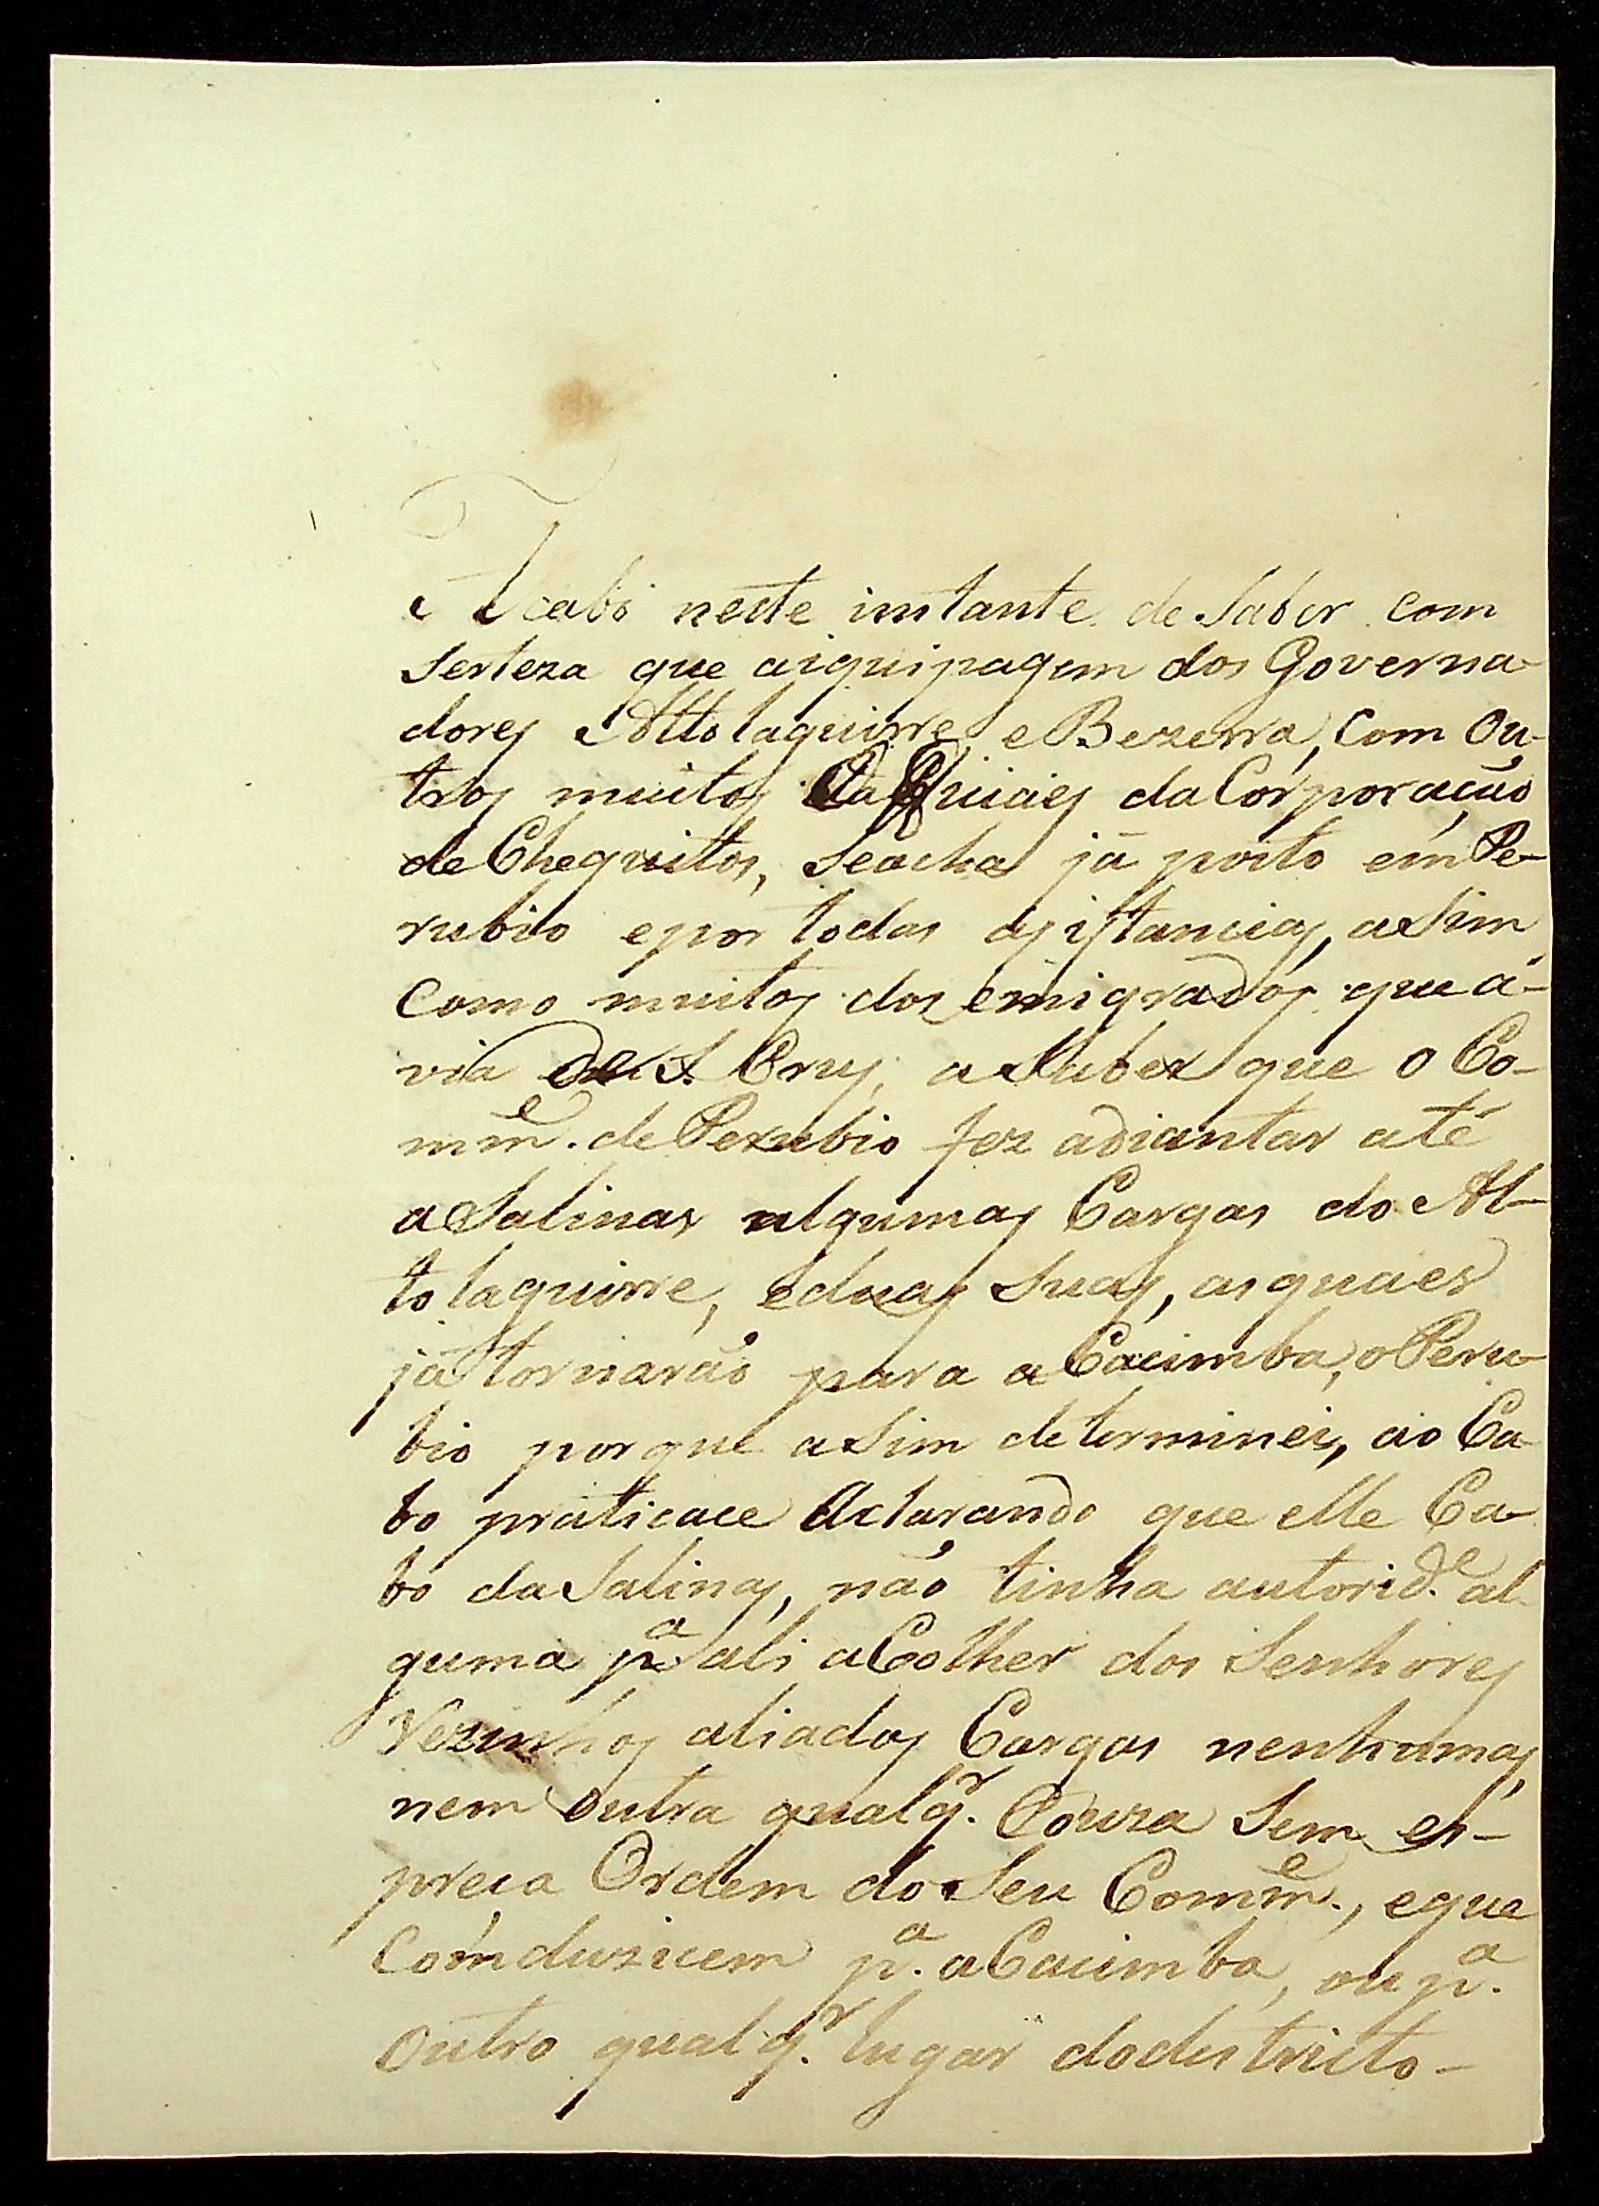 Acabo neste instante de Saber com
Serteza que aiquipagem dos Governa-
dores Altolaguirre, e Bezerra, com Ou-
tros muitos Officiaes da Corporação
de Chequitos, Seacha já posto em Pe-
rubio epor todas as istancias, aSim
como muitos dos emigrados que a-
via de S. Cruz, a Saber que o Co-
mm.e de Perubio fez adiantar até
aSalinas algumas Cargas do Al-
tolaguirre, eduas Suas, asquaes
já tornarão para aCacimba, o Peru-
bio porque aSim determinei, ao Ca
bo praticace declarando que elle Ca-
bo da Salinas, não tinha autorid.e al-
guma p.a ali aColher dos Senhores
Vezinhos aliados Cargas nenhumas,
nem Outra qualq.r Couza Sem es-
preça Ordem do Seu Comm.e, eque
Comduzicem p.a aCacimba, ou p.a
Outro qualq.r lugar dodestricto-